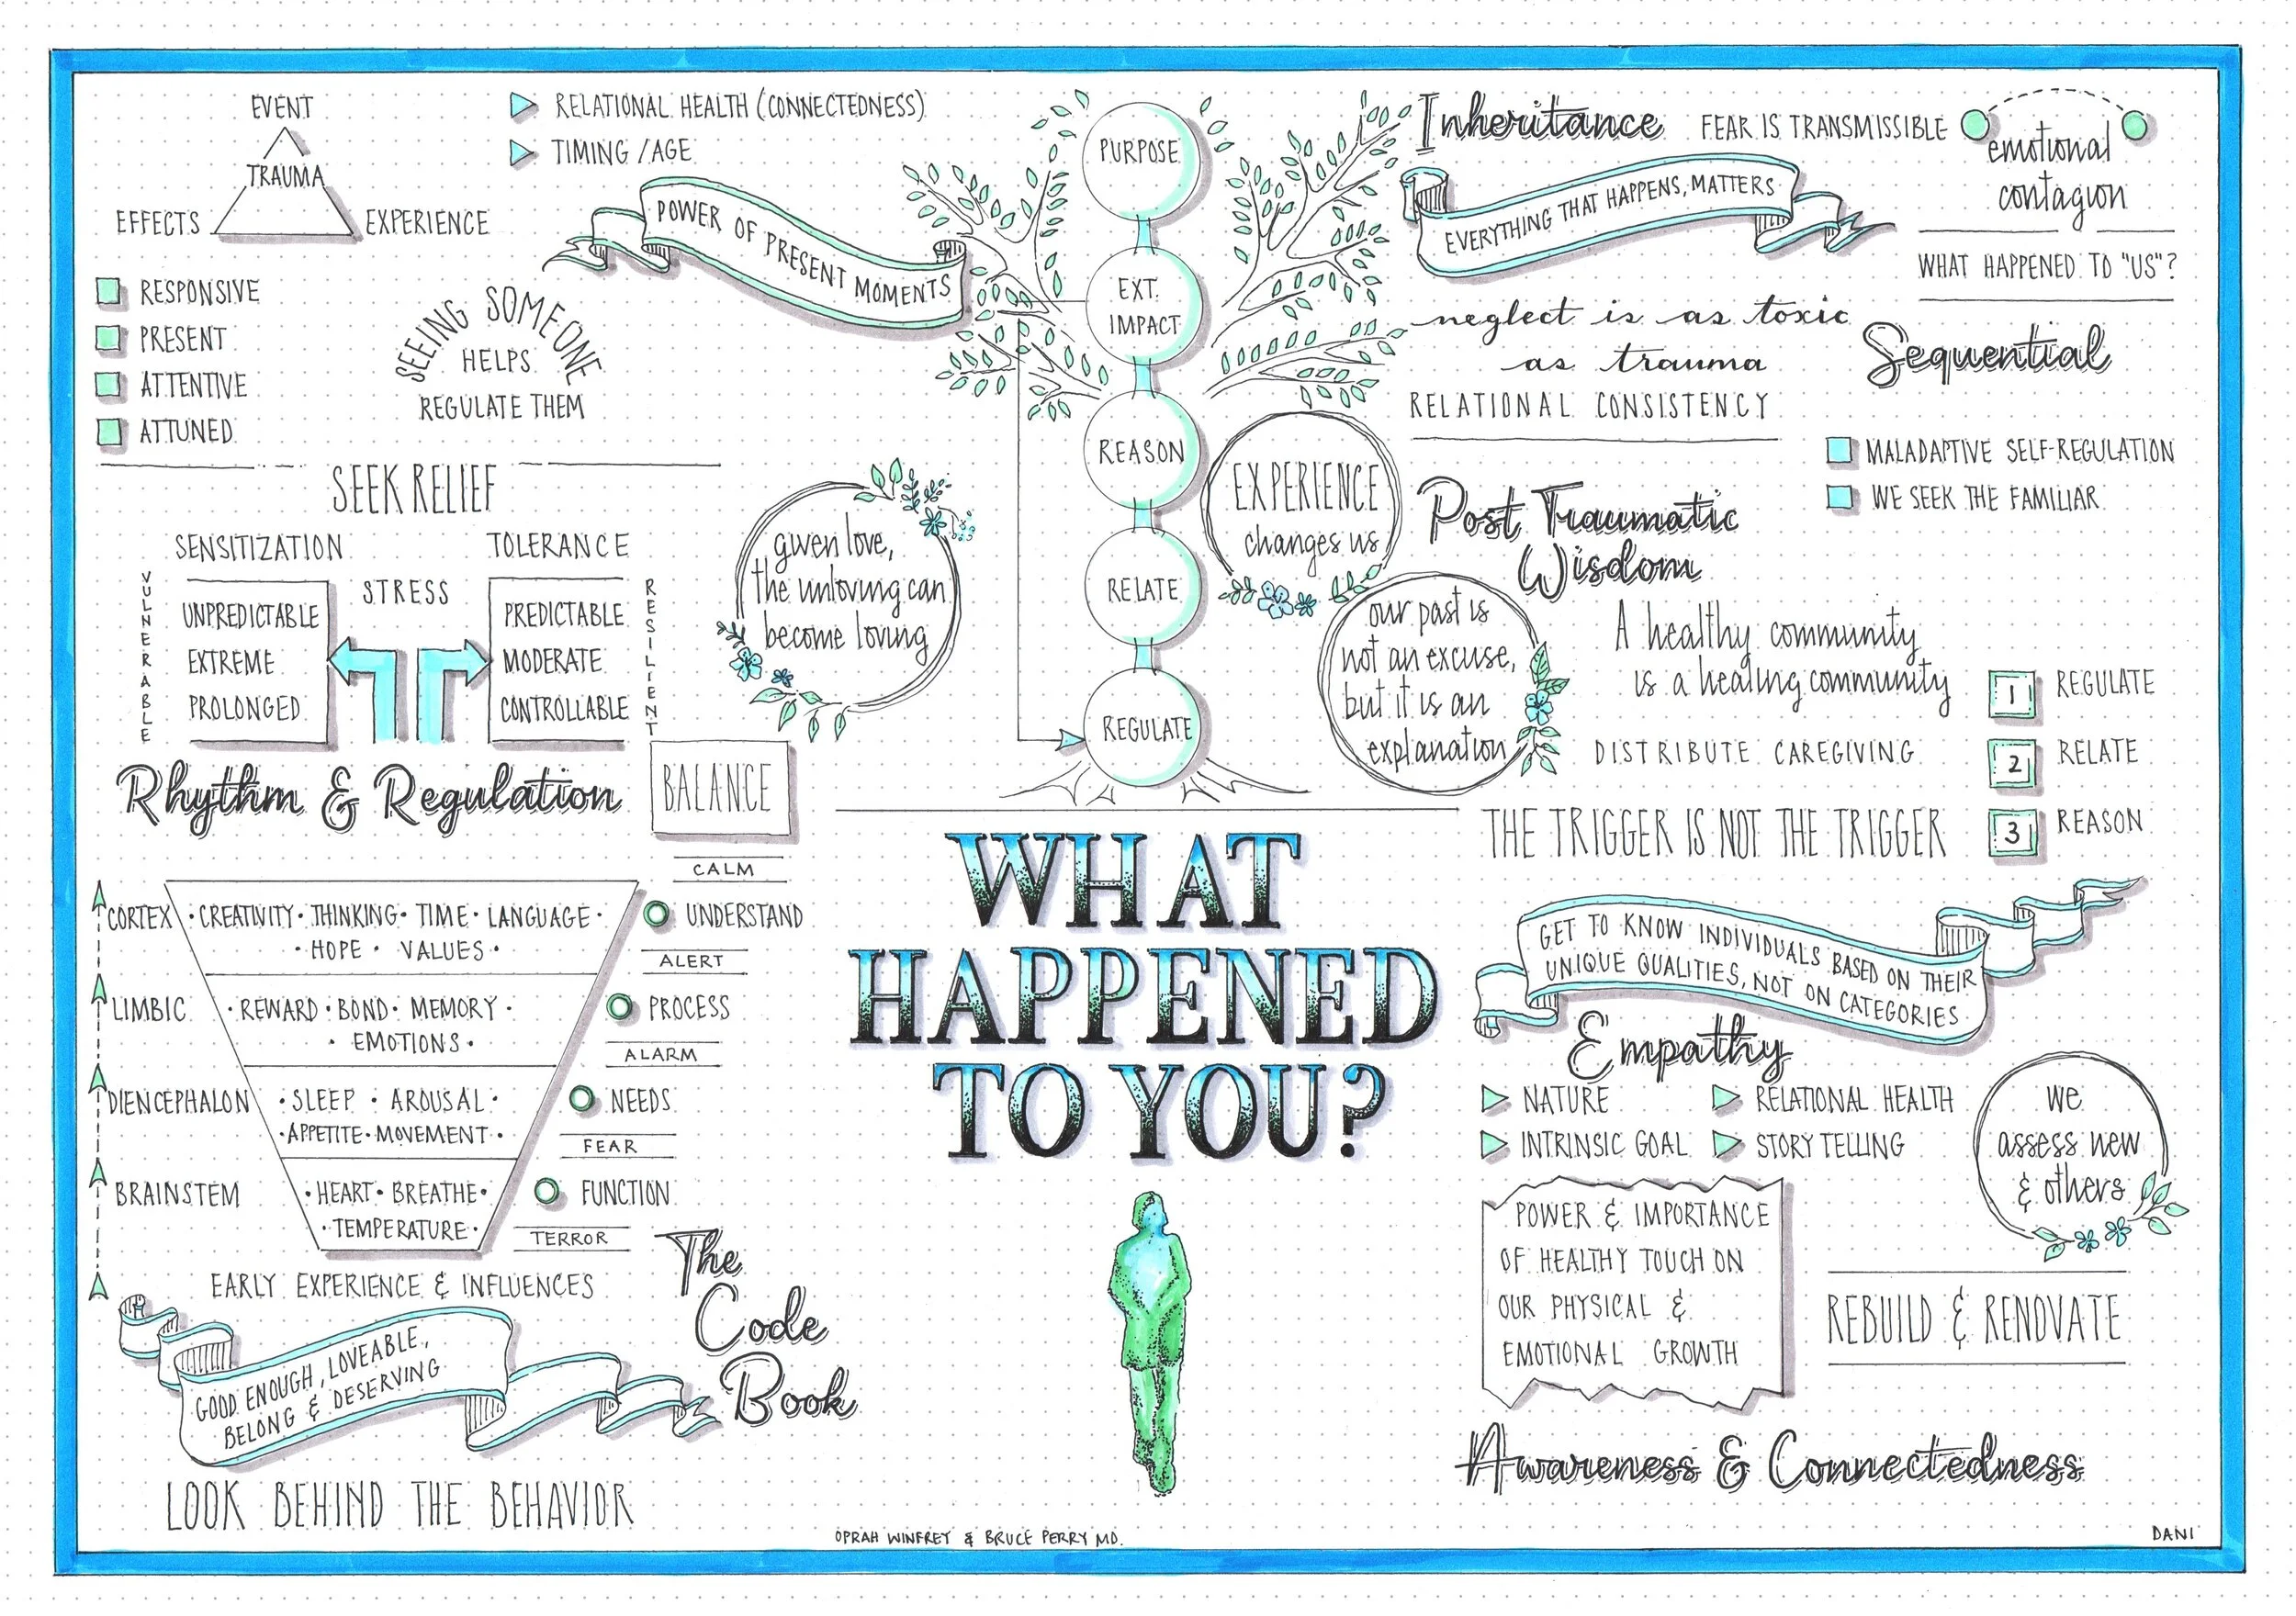 EVENT
TRAUMA
EFFECTS
EXPERIENCE
RELATIONAL HEALTH (CONNECTEDNESS)
TIMING / AGE
POWER OF PRESENT MOMENTS
RESPONSIVE
PRESENT
ATTENTIVE
ATTUNED
SEEING SOMEONE
HELPS
REGULATE THEM
SEEK RELIEF
SENSITIZATION
TOLERANCE
STRESS
VULNERABLE
UNPREDICTABLE
EXTREME
PROLONGED
PREDICTABLE
MODERATE
CONTROLLABLE
RESILIENT
Rhythm & Regulation
BALANCE
given love,
the unloving can
become loving
PURPOSE
EXT.
IMPACT
REASON
RELATE
REGULATE
EXPERIENCE
changes us
our past is
not an excuse,
but it is an
explanation
Inheritance
FEAR IS TRANSMISSIBLE
emotional
contagion
EVERYTHING THAT HAPPENS, MATTERS
WHAT HAPPENED TO "US"?
neglect is as toxic
as trauma
Sequential
RELATIONAL CONSISTENCY
MALADAPTIVE SELF-REGULATION
WE SEEK THE FAMILIAR
Post Traumatic
Wisdom
A healthy community
is a healing community
DISTRIBUTE CAREGIVING
1 REGULATE
2 RELATE
3 REASON
THE TRIGGER IS NOT THE TRIGGER
CALM
CORTEX
• CREATIVITY • THINKING • TIME • LANGUAGE •
• HOPE • VALUES •
UNDERSTAND
ALERT
LIMBIC
• REWARD • BOND • MEMORY •
• EMOTIONS •
PROCESS
ALARM
DIENCEPHALON
• SLEEP • AROUSAL •
• APPETITE • MOVEMENT •
NEEDS
FEAR
BRAINSTEM
• HEART • BREATHE •
• TEMPERATURE •
FUNCTION
TERROR
EARLY EXPERIENCE & INFLUENCES
The
Code
Book
GOOD ENOUGH, LOVEABLE,
BELONG & DESERVING
LOOK BEHIND THE BEHAVIOR
WHAT
HAPPENED
TO YOU?
OPRAH WINFREY & BRUCE PERRY MD.
GET TO KNOW INDIVIDUALS BASED ON THEIR
UNIQUE QUALITIES, NOT ON CATEGORIES
Empathy
NATURE
RELATIONAL HEALTH
INTRINSIC GOAL
STORY TELLING
we
assess new
& others
POWER & IMPORTANCE
OF HEALTHY TOUCH ON
OUR PHYSICAL &
EMOTIONAL GROWTH
REBUILD & RENOVATE
Awareness & Connectedness
DANI